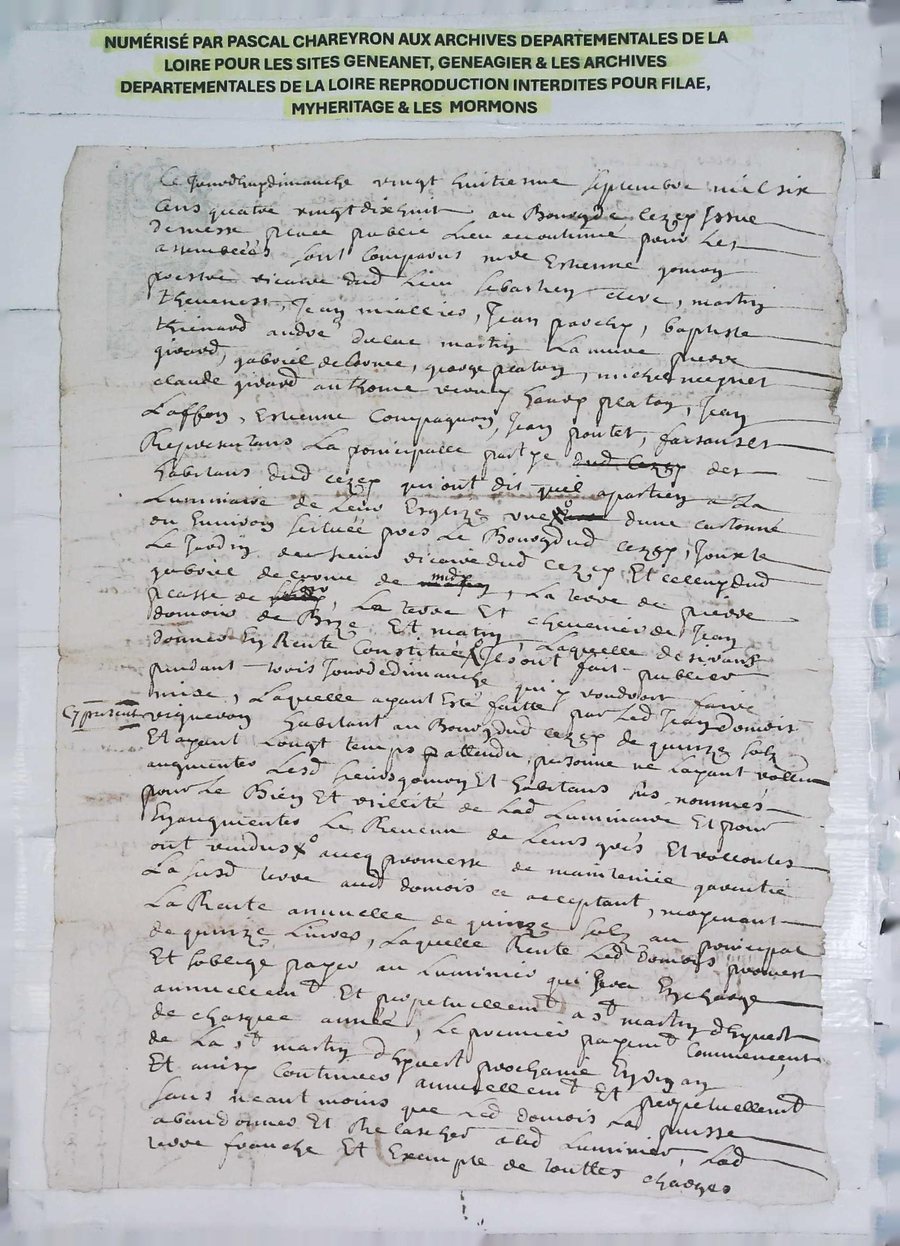 NUMÉRISÉ PAR PASCAL CHAREYRON AUX ARCHIVES DEPARTEMENTALES DE LA
LOIRE POUR LES SITES GENEANET, GENEAGIER & LES ARCHIVES
DEPARTEMENTALES DE LA LOIRE REPRODUCTION INTERDITES POUR FILAE,
MYHERITAGE & LES MORMONS
Ce Jourdhuy dimanche vingt huitiesme septembre mil six
cens quatre vingt dix huit au Bourg de Cezey Issue
de messe place publiq lieu accoutumé pour les
assemblées sont comparus mre Estienne gomon
prestre vicaire dud lieu sebastien cleve, martin
thevenest, Jean miallies, Jean , baptiste
thienard andré duluc martin Lamure pierre
girard, gabriel de , george platon, michel
claude girard anthoine platon, Jean
Laffon, Estienne Compagnon, Jean pontet, faisants et
Representans La principalle partye des
habitans dud cezey qui ont dit quil apartien a La
Luminaire de Leur Esglize une dune cartonné
ou Environ scituée pres le Bourg dud cezey, Jouxte
Le Jardin du sieur vicaire dud cezey Et celluy dud
gabriel de de , La terre de pierre
de , La terre Et chenevier de Jean
domois de Bize Et matin, Laquelle desirans
donner En Rente Constituée Ils ont fait publier
pendant trois Jours de dimanche qui y voudroit faire
mise, Laquelle ayant Esté faitte par Led Jean domois
Cy present
vigneron habitant au Bourg dud cezey de quinze solz
Et ayant Longt temps attendu, personne ne Layant voullu
augmenter Lesd sieurs gomon Et habitans sus nommés
pour Le Bien Et utillité de Lad Luminaire Et pour
En augmenter Le Revenu de Leurs grés Et vollontes
ont vendus avecq promesse de maintenir garentie
La susd terre aud domois ce acceptant, moyenant
La Rente annuelle de quinze solz au principal
de quinze Livres, Laquelle Rente Led domois promest
Et soblige payer au Luminier qui sera En charge
annuellemt Et perpetuellemt a st martin dhyvert
de chasque année, Le premier payemt Commencent
de La st martin dhyvert prochaine En un an
Et ainsy Continuer annuellemt Et perpetuellemt
sans neantmoins que Led domois La puisse
abandonner Et Relascher aud Luminier, Lad
terre franche Et Exempte de touttes charges